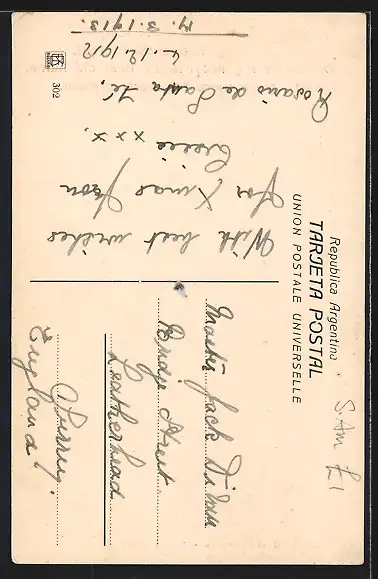 Republica Argentina
TARJETA POSTAL
UNION POSTALE UNIVERSELLE
S. Am £1
With best wishes
for Xmas from
x x x.
Rosario de Santa Fé,
4.12.1912
3.1913.
302
Master Jack
Bridge Street.
Leatherhead
Surrey.
England